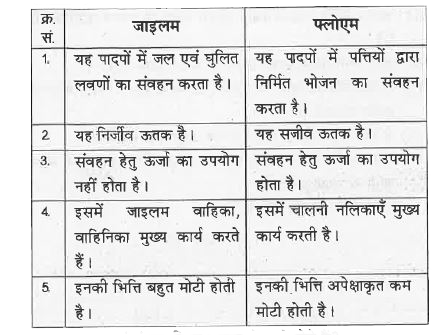 क्र. सं. जाइलम फ्लोएम
1. यह पादपों में जल एवं घुलित यह पादपों में पत्तियों द्वारा
लवणों का संवहन करता है। निर्मित भोजन का संवहन
करता है।
2 यह निर्जीव ऊतक है। यह सजीव ऊतक है।
3. संवहन हेतु ऊर्जा का उपयोग संवहन हेतु ऊर्जा का उपयोग
नहीं होता है। होता है।
4. इसमें जाइलम वाहिका, इसमें चालनी नलिकाएँ मुख्य
वाहिनिका मुख्य कार्य करते कार्य करती है।
हैं।
5. इनकी भित्ति बहुत मोटी होती इनकी भित्ति अपेक्षाकृत कम
है। मोटी होती है।